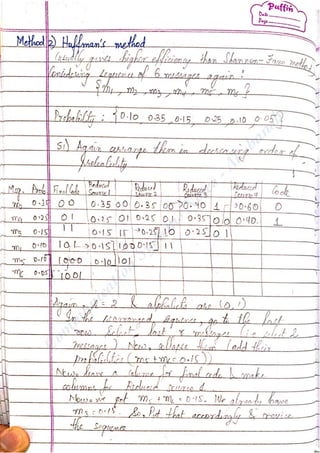 Puffin
Date
Page
Method 2) Huffman's method
(usually gives higher efficiency than Shannon-Fano method)
Considering sequence of 6 messages again :
{m₁, m₂, m₃, m₄, m₅, m₆}
Probability : {0.10 0.35 0.15 0.25 0.10 0.05}
S1) Again arrange them in decreasing order of
probability
Msg. Prob. Final Code Reduced Source 1 Reduced Source 2 Reduced Source 3 Reduced Source 4 Code
m₂ 0.35 00 0.35 00 0.35 00 0.40 1 0.60 0
m₄ 0.25 01 0.25 01 0.25 01 0.35 00 0.40 1
m₃ 0.15 11 0.15 11 0.25 10 0.25 01
m₁ 0.10 101 0.15 100 0.15 11
m₅ 0.10 1000 0.10 101
m₆ 0.05 1001
Again, r = 2 & alphabets are (0,1)
In the rearranged sequence, go to the last
row. Select last r messages (i.e. select 2
messages) Now, collapse them (add their
probabilities (m₅ + m₆ = 0.15))
Now, leave a column for final code & make
columns for Reduced source 1.
Now we get m₅ + m₆ = 0.15. We already have
m₃ = 0.15. So, Put that accordingly & revise
the sequence